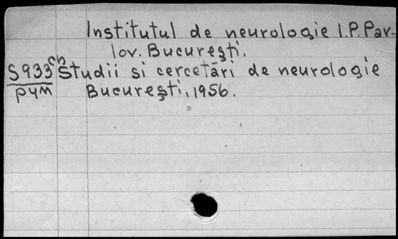 Institutul de neurologie I.P.Pav-
lov. București.
S933ch Studii si cercetări de neurologie
рум București, 1956.